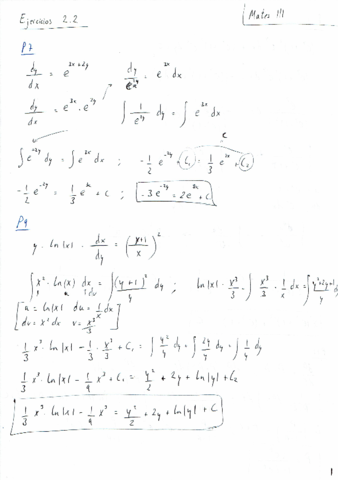 Ejercicios 2.2
Mates III
P7
dy/dx = e^{3x+2y}
dy/e^{2y} = e^{3x} dx
dy/dx = e^{3x} · e^{2y}
∫ 1/e^{2y} dy = ∫ e^{3x} dx
∫ e^{-2y} dy = ∫ e^{3x} dx ; -1/2 e^{-2y} + C₁ = 1/3 e^{3x} + C₂
C
-1/2 e^{-2y} = 1/3 e^{3x} + C ; -3e^{-2y} = 2e^{3x} + C
P9
y · ln|x| · dx/dy = ((y+1)/x)^2
∫ x² · ln(x) dx = ∫ (y+1)²/y dy ; ln|x| · x³/3 - ∫ x³/3 · 1/x dx = ∫ (y²+2y+1)/y dy
u = ln|x| du = 1/x dx
dv = x² dx v = x³/3
1/3 x³ · ln|x| - 1/3 · x³/3 + C₁ = ∫ y²/y dy + ∫ 2y/y dy + ∫ 1/y dy
1/3 x³ · ln|x| - 1/9 x³ + C₁ = y²/2 + 2y + ln|y| + C₂
1/3 x³ ln|x| - 1/9 x³ = y²/2 + 2y + ln|y| + C
1